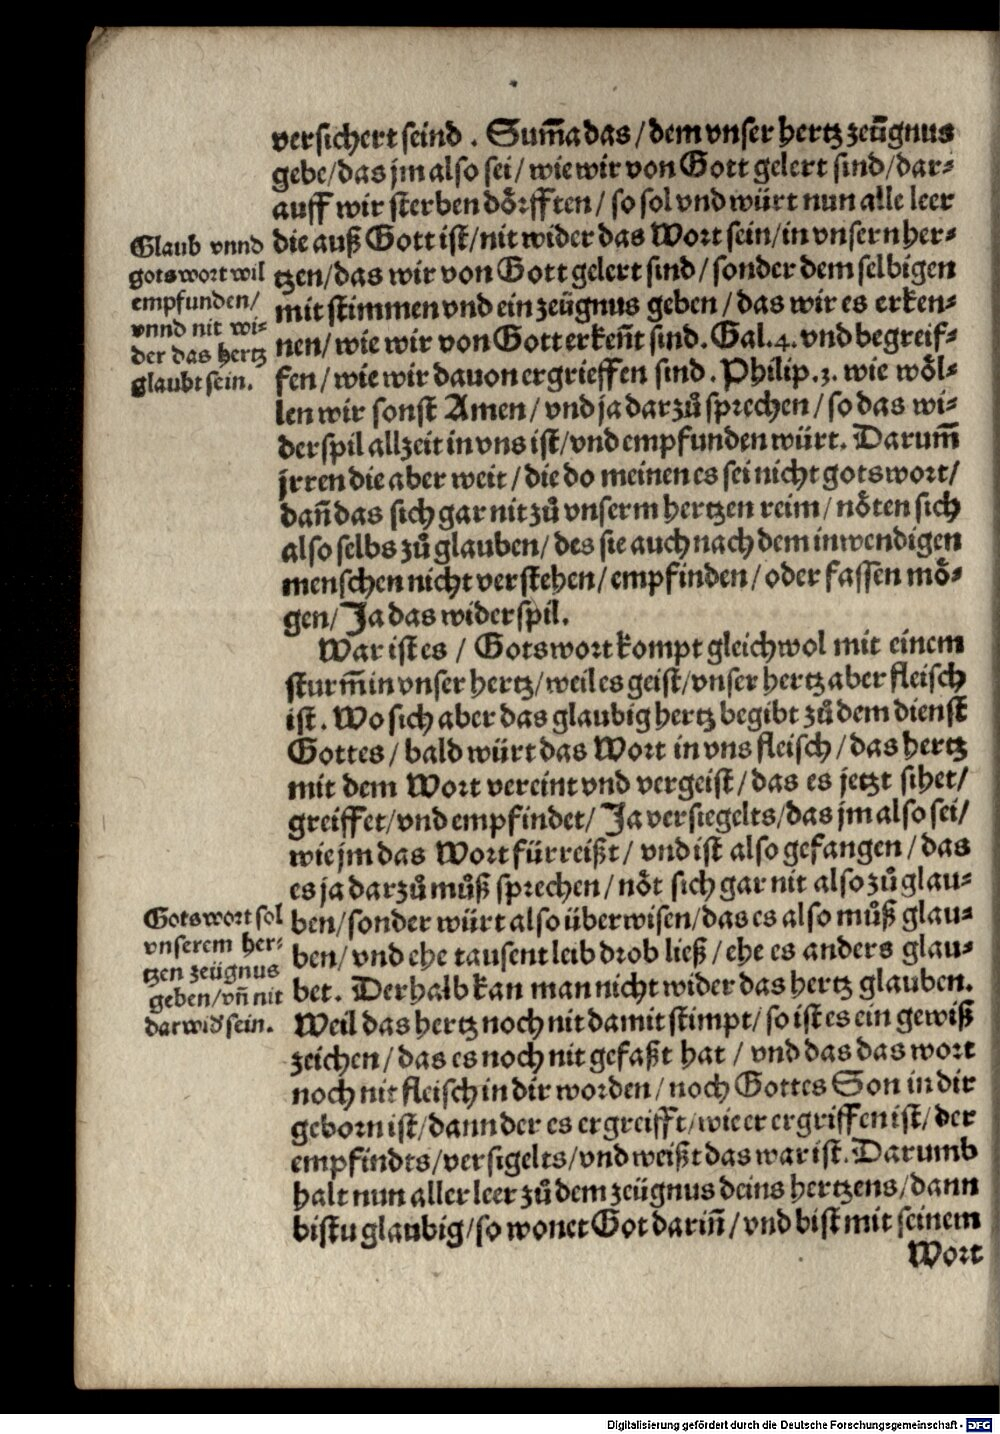 versichert seind . Sum̄a das / dem vnser hertz zeügnus
gebe / das jm also sei / wie wir von Gott gelert sind / dar⸗
auff wir sterben doͤrfften / so sol vnd würt nun alle leer
die auß Gott ist / nit wider das Wort sein / in vnsern her⸗
tzen / das wir von Gott gelert sind / sonder dem selbigen
mit stimmen vnd ein zeügnus geben / das wir es erken⸗
nen / wie wir von Gott erken̄t sind . Gal. 4. vnd begreif⸗
fen / wie wir dauon ergrieffen sind . Philip. 3. wie woͤl⸗
len wir sonst Amen / vnd ja darzuͦ sprechen / so das wi⸗
derspil allzeit in vns ist / vnd empfunden würt. Darum̄
jrren die aber weit / die do meinen es sei nicht gotswort /
dan̄ das sich gar nit zuͦ vnserm hertzen reim / noͤten sich
also selbs zuͦ glauben / des sie auch nach dem inwendigen
menschen nicht verstehen / empfinden / oder fassen moͤ⸗
gen / Ja das widerspil.
War ist es / Gotswort kompt gleichwol mit einem
sturm̄ in vnser hertz / weil es geist / vnser hertz aber fleisch
ist . Wo sich aber das glaubig hertz begibt zuͦ dem dienst
Gottes / bald würt das Wort in vns fleisch / das hertz
mit dem Wort vereint vnd vergeist / das es jetzt sihet /
greiffet / vnd empfindet / Ja versiegelts / das jm also sei /
wie jm das Wort fürreißt / vnd ist also gefangen / das
es ja darzuͦ muͦß sprechen / noͤt sich gar nit also zuͦ glau⸗
ben / sonder würt also überwisen / das es also muͦß glau⸗
ben / vnd ehe tausent leib drob ließ / ehe es anders glau⸗
bet . Derhalb kan man nicht wider das hertz glauben.
Weil das hertz noch nit damit stimpt / so ist es ein gewiß
zeichen / das es noch nit gefaßt hat / vnd das das wort
noch nit fleisch in dir worden / noch Gottes Son in dir
geborn ist / dann der es ergreifft / wie er ergriffen ist / der
empfindts / versigelts / vnd weißt das war ist. Darumb
halt nun aller leer zuͦ dem zeügnus deins hertzens / dann
bistu glaubig / so wonet Got darin̄ / vnd bist mit seinem
Wort
Glaub vnnd
gotswort wil
empfunden /
vnnd nit wi⸗
der das hertz
glaubt sein.
Gotswort sol
vnserem her⸗
tzen zeügnus
geben / vn̄ nit
darwid' sein.
Digitalisierung gefördert durch die Deutsche Forschungsgemeinschaft - DFG